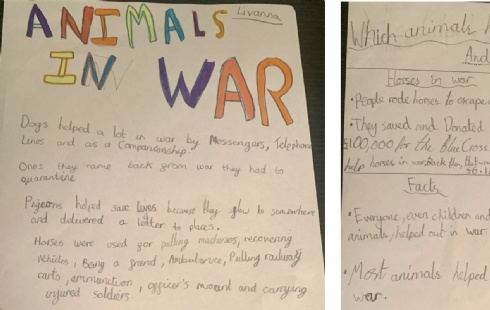 ANIMALS
Livanna
IN WAR
Dogs helped a lot in war by Messengers, Telephone
Lines and as a Companionship.
Ones they name back from war they had to
quarantine
Pigeons helped save lives because they flow to somewhere
and delivered a letter to places.
Horses were used for pulling machines, recovering
vehicles, Being a friend, Ambulance, Pulling railway
carts, ammunition, officer's mount and carrying
injured soldiers.
Which animals
And
Horses in war
• People rode horses to escape
• They saved and Donated
$100,000 for the Blue Cross
help horses in war
Facts
• Everyone, even children and
animals, helped out in war.
• Most animals helped
war.